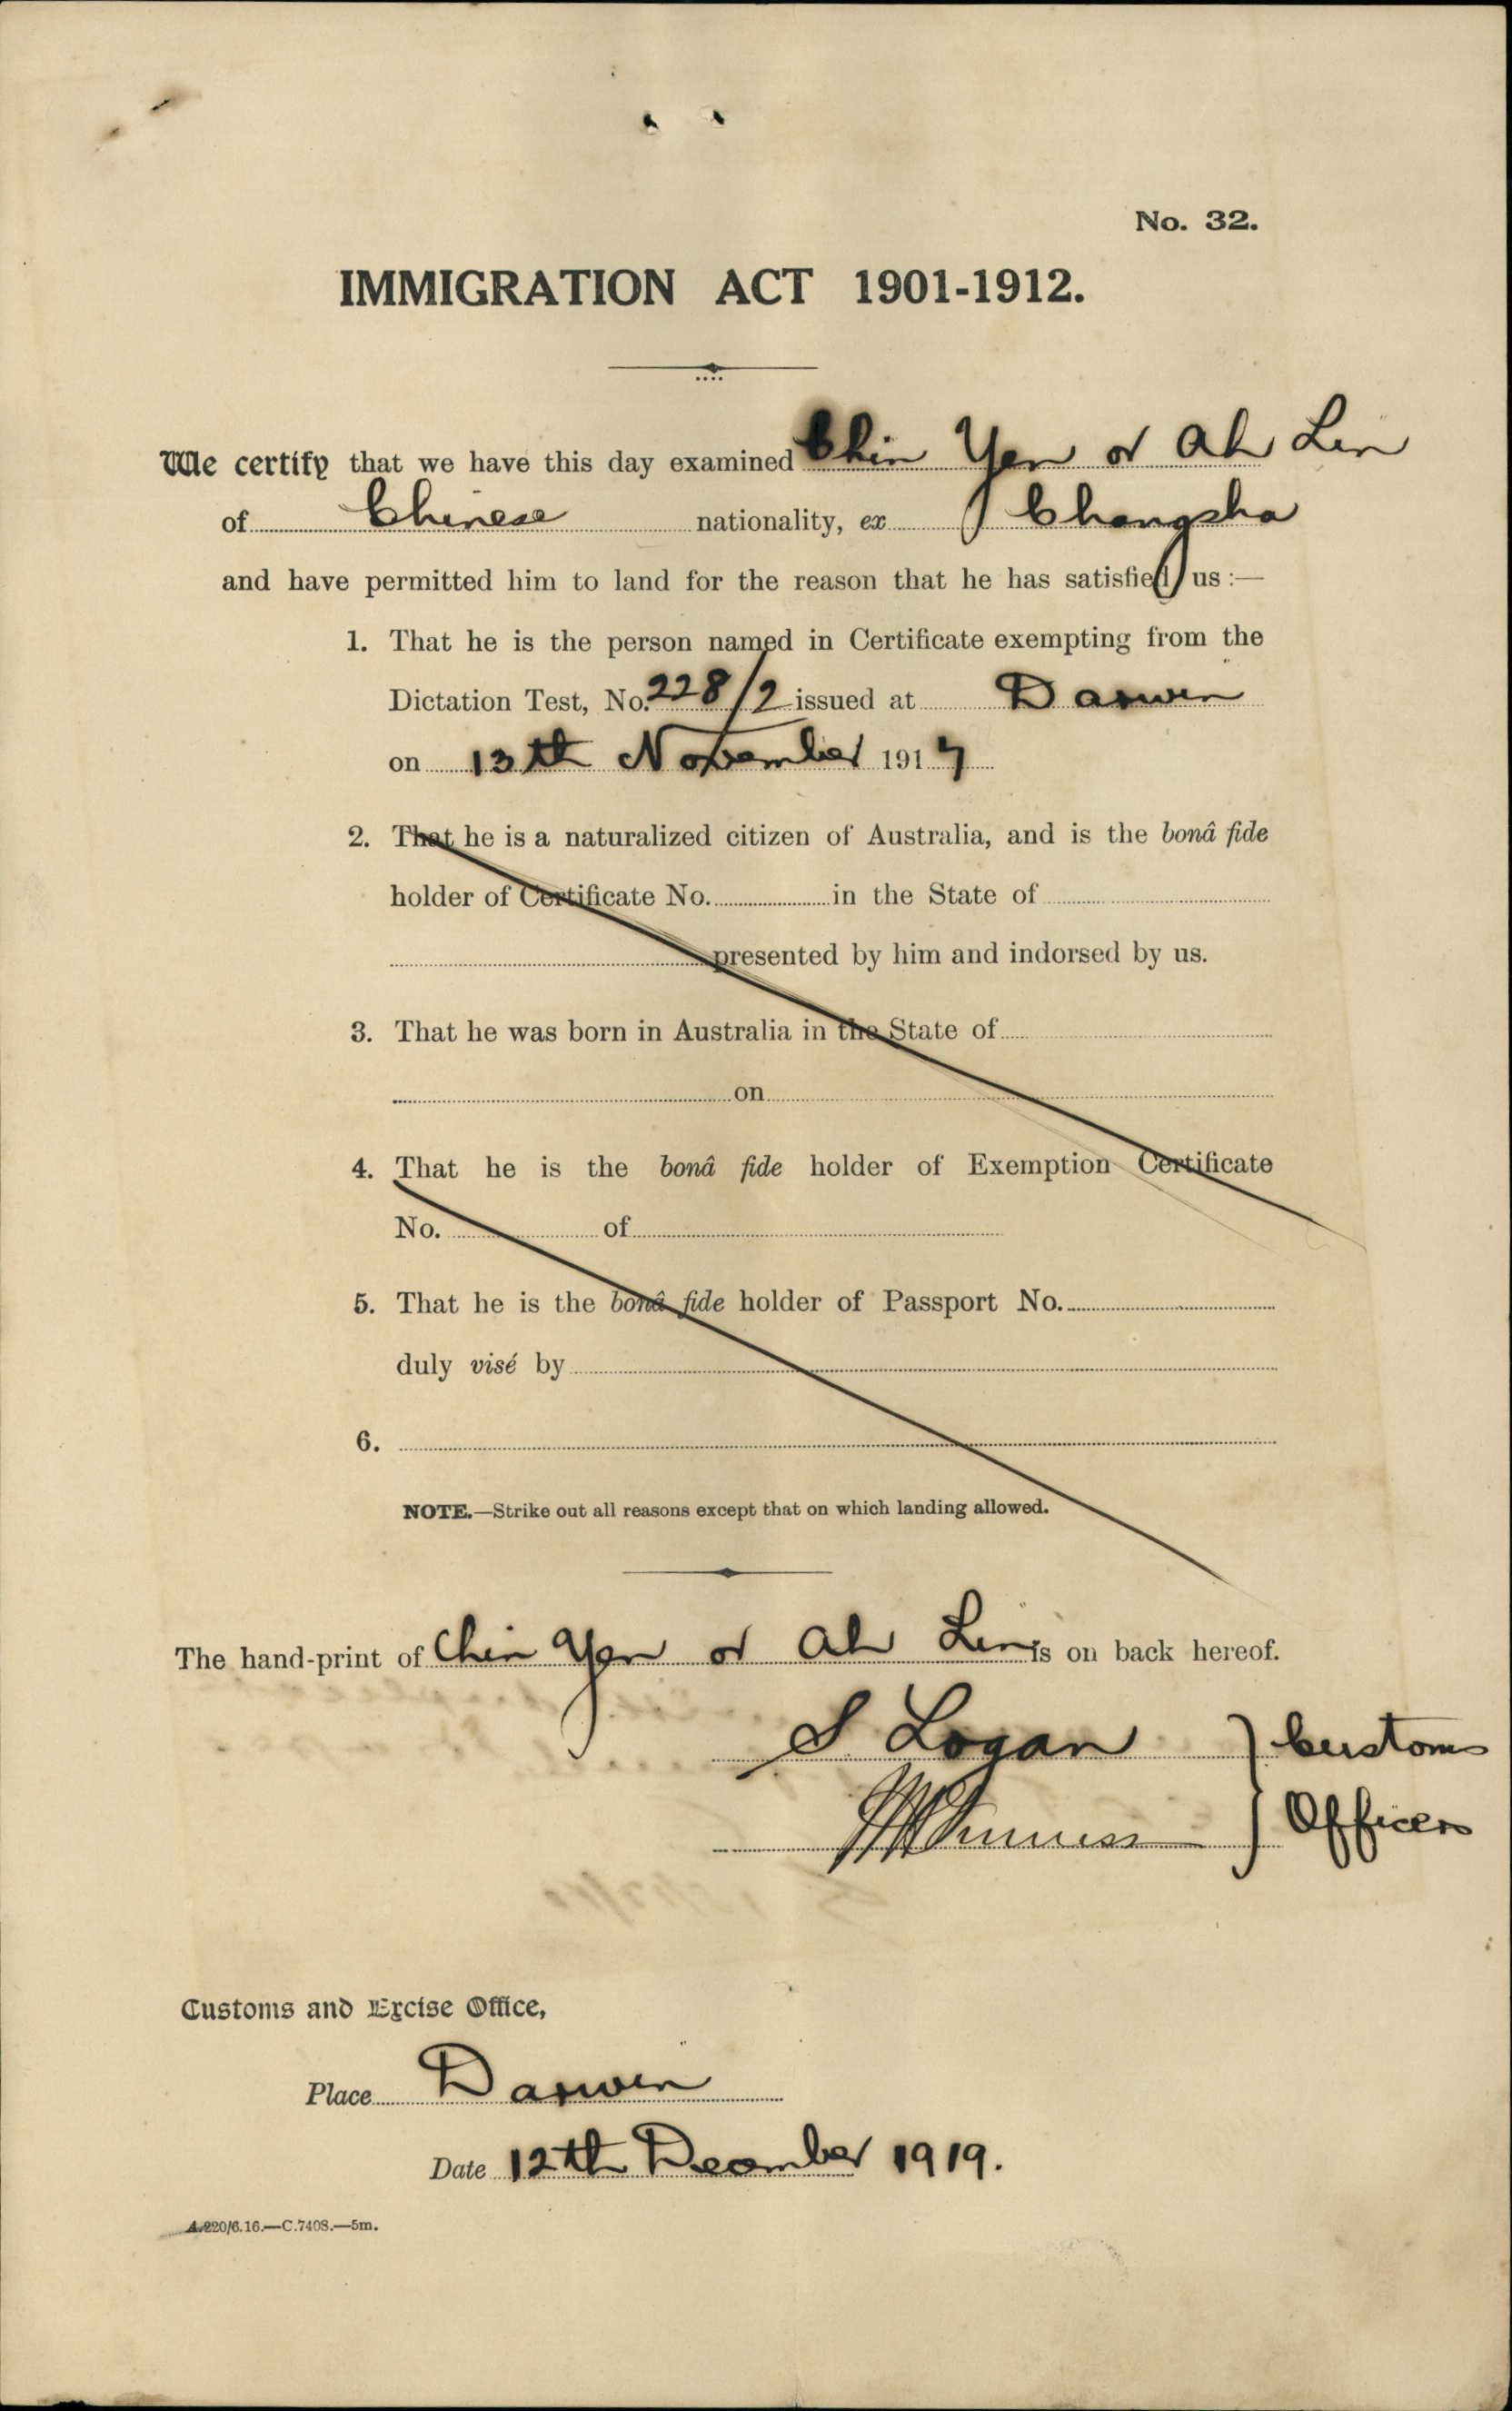 No. 32.
IMMIGRATION ACT 1901-1912.
We certify that we have this day examined Chin Yen or Ah Lin
of Chinese nationality, ex Changsha
and have permitted him to land for the reason that he has satisfied us :—
1. That he is the person named in Certificate exempting from the
Dictation Test, No. 228/2 issued at Darwin
on 13th November 1917
2. That he is a naturalized citizen of Australia, and is the bonâ fide
holder of Certificate No. in the State of
presented by him and indorsed by us.
3. That he was born in Australia in the State of
on
4. That he is the bonâ fide holder of Exemption Certificate
No. of
5. That he is the bonâ fide holder of Passport No.
duly visé by
6.
NOTE.—Strike out all reasons except that on which landing allowed.
The hand-print of Chin Yen or Ah Lin is on back hereof.
S Logan } Customs
} Officers
Customs and Excise Office,
Place Darwin
Date 12th December 1919.
A.220/6.16.—C.7408.—5m.